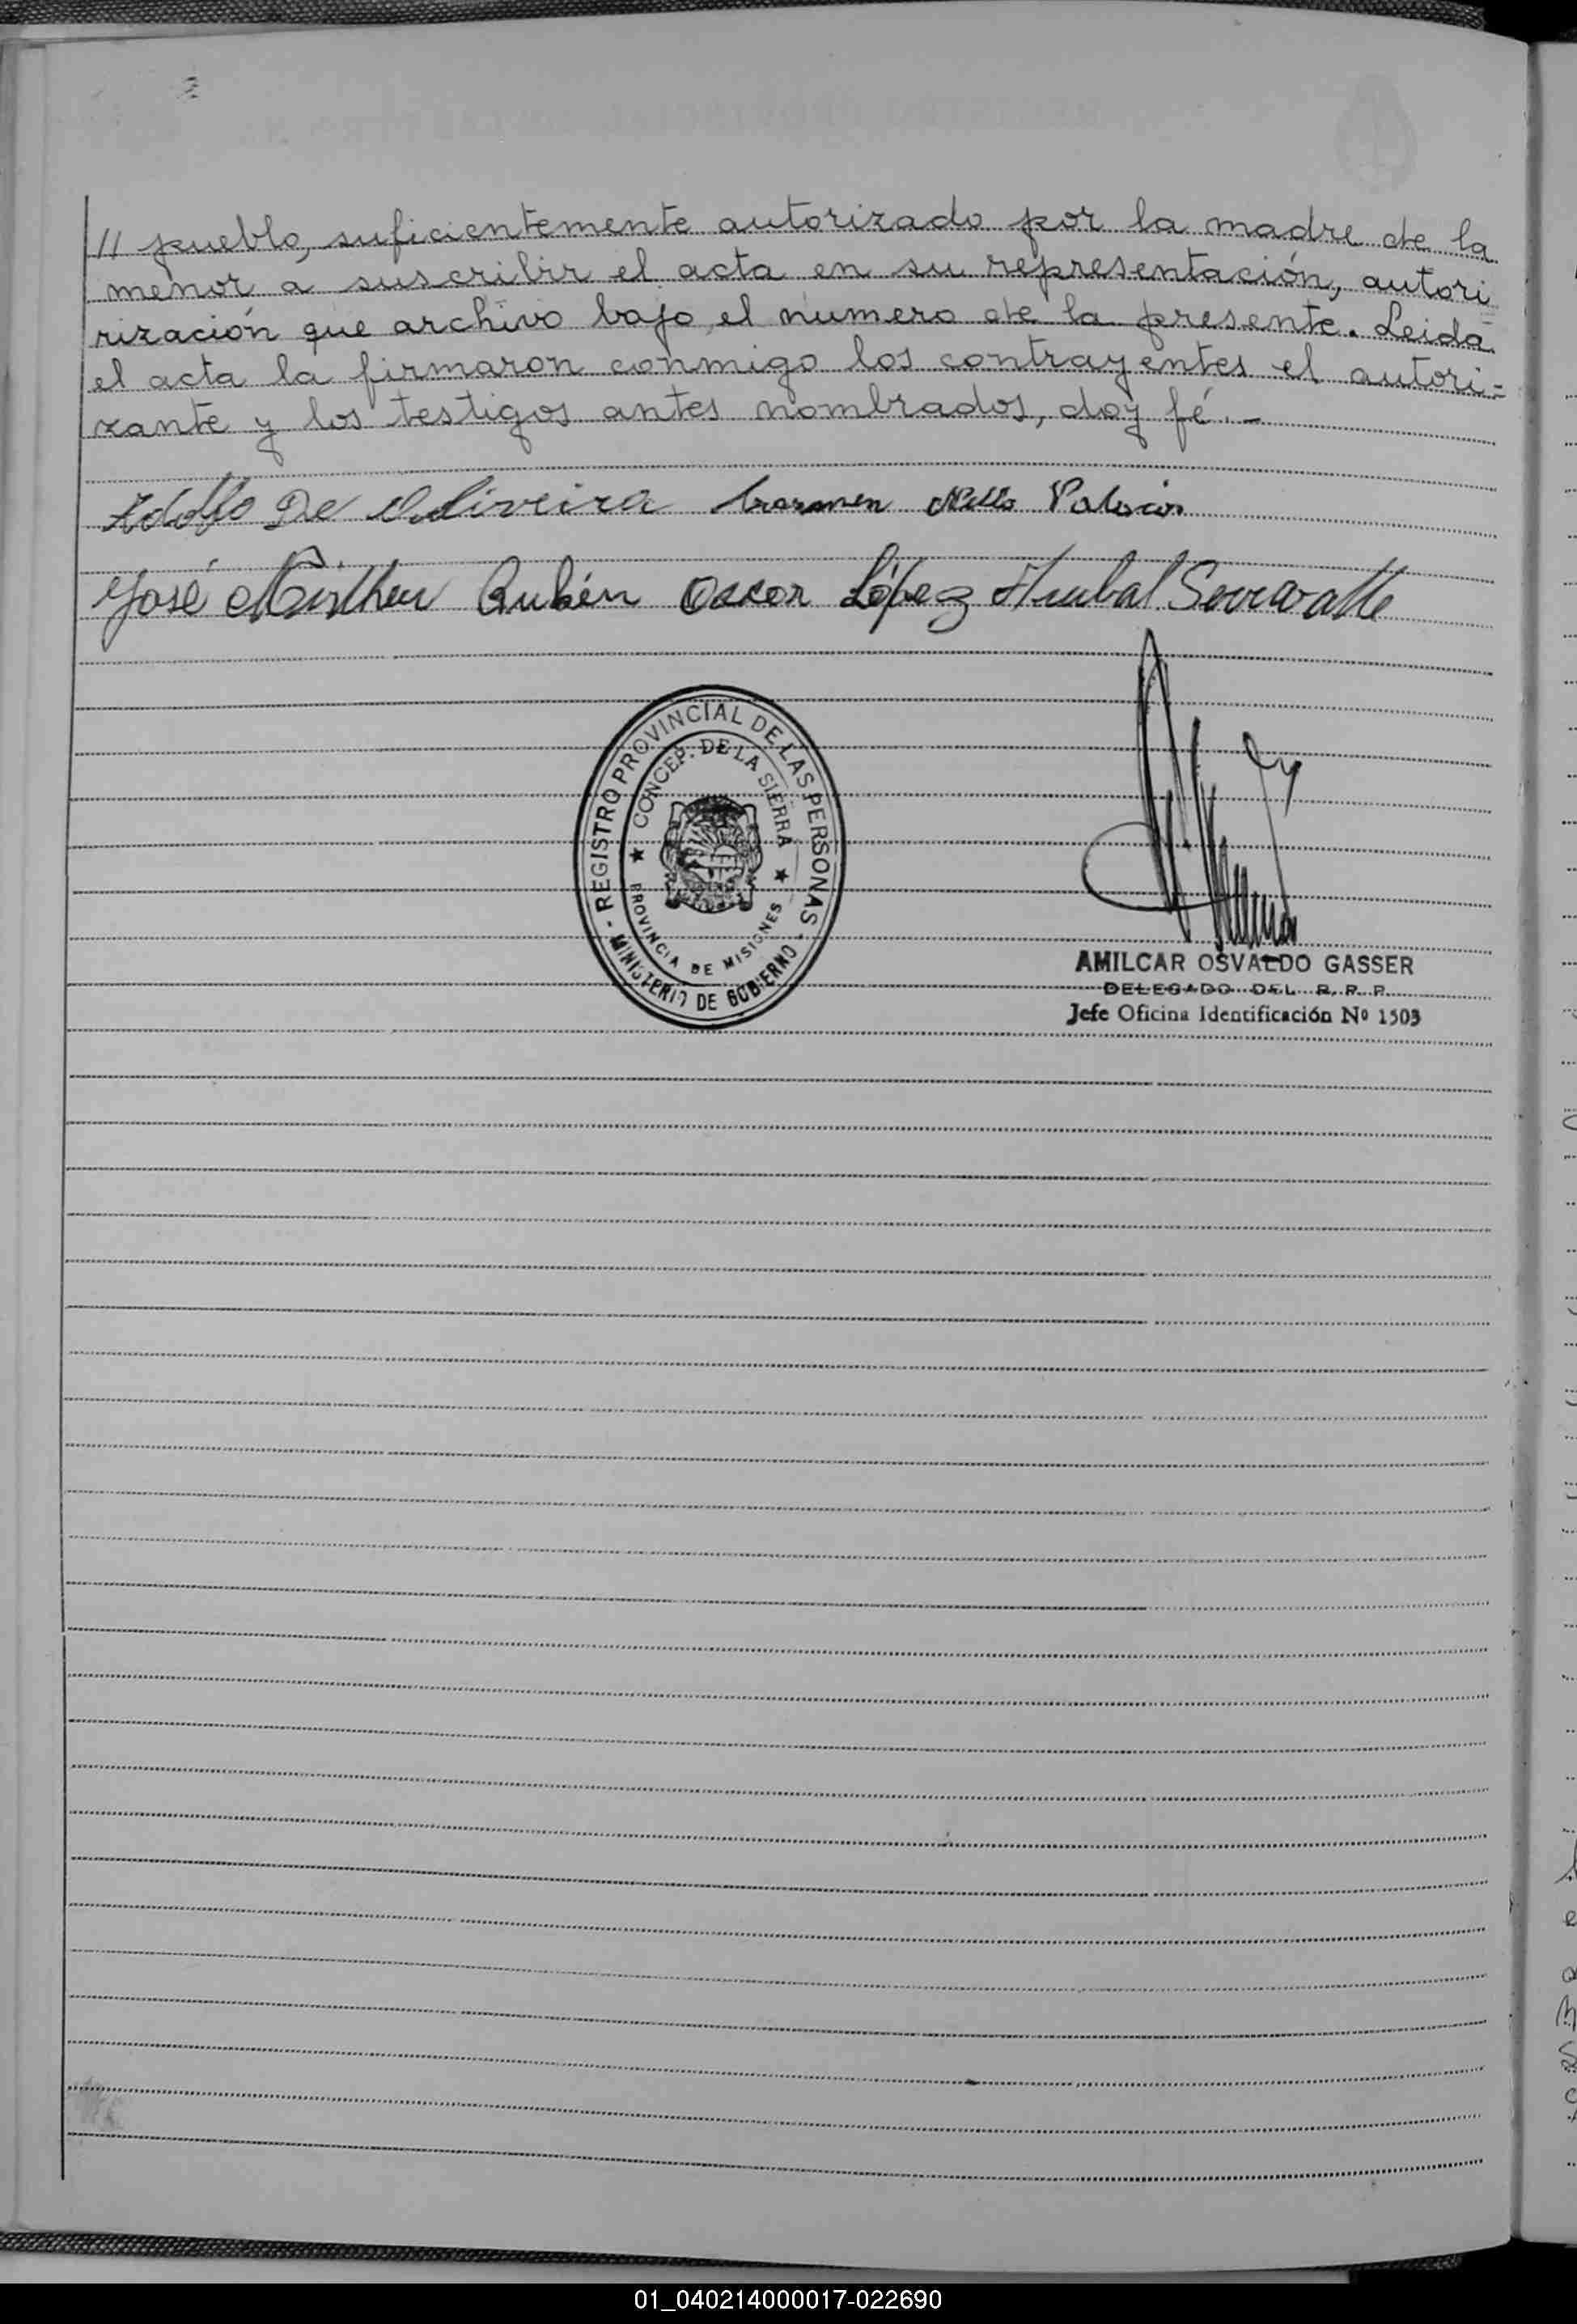 // pueblo, suficientemente autorizado por la madre de la
menor a suscribir el acta en su representación, autori
rización que archivo bajo el número de la presente. Leida
el acta la firmaron conmigo los contrayentes el autori-
zante y los testigos antes nombrados, doy fé.-
Adolfo De Oliveira Carmen
José Rubén Oscar López Anibal
REGISTRO PROVINCIAL DE LAS PERSONAS
CONCEP. DE LA SIERRA
PROVINCIA DE MISIONES
- MINISTERIO DE GOBIERNO -
AMILCAR OSVALDO GASSER
DELEGADO DEL R. P. P.
Jefe Oficina Identificación Nº 1503
01_040214000017-022690